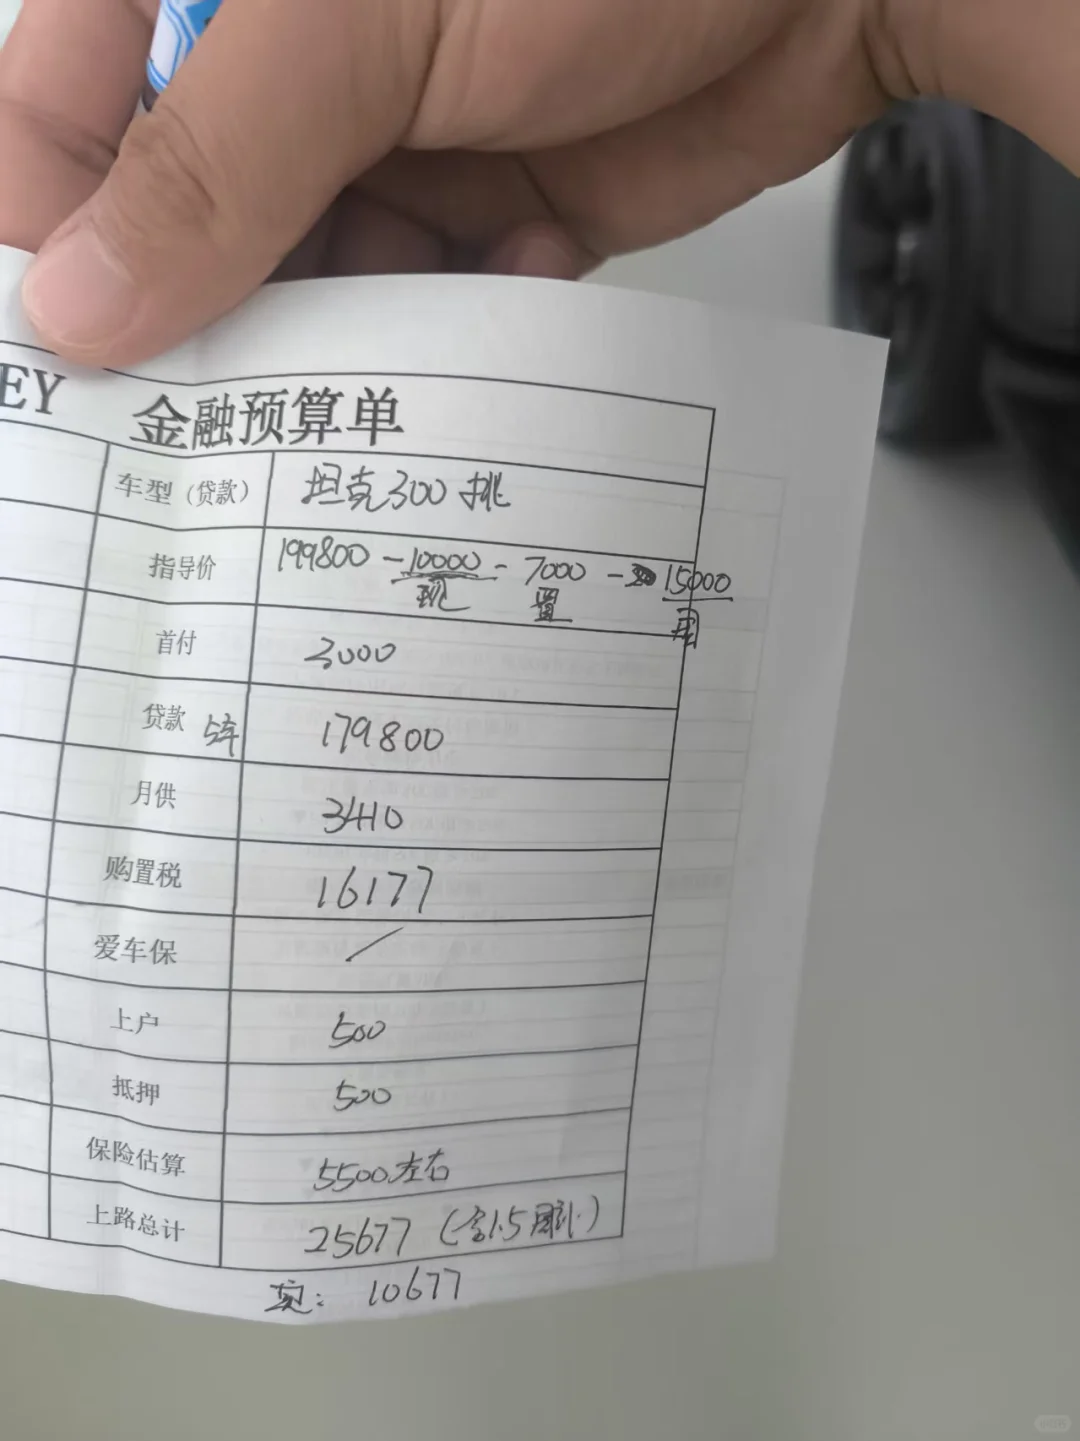 EY 金融预算单
车型（贷款） 坦克300挑
指导价 199800 -10000 - 7000 - 15000
现 置 国
首付 3000
贷款 5年 179800
月供 3410
购置税 16177
爱车保 /
上户 500
抵押 500
保险估算 5500左右
上路总计 25677 (含1.5国补)
实: 10677